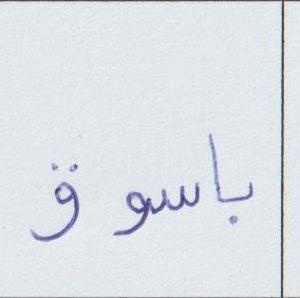 باسوق